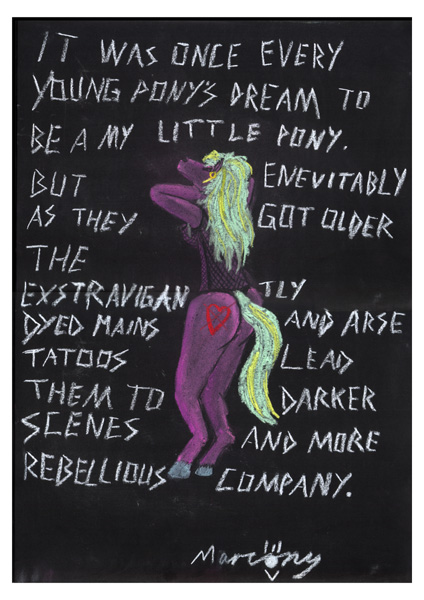 IT WAS ONCE EVERY
YOUNG PONY'S DREAM TO
BE A MY LITTLE PONY.
BUT ENEVITABLY
AS THEY GOT OLDER
THE
EXSTRAVIGANTLY
DYED MAINS AND ARSE
TATOOS LEAD
THEM TO DARKER
SCENES AND MORE
REBELLIOUS COMPANY.